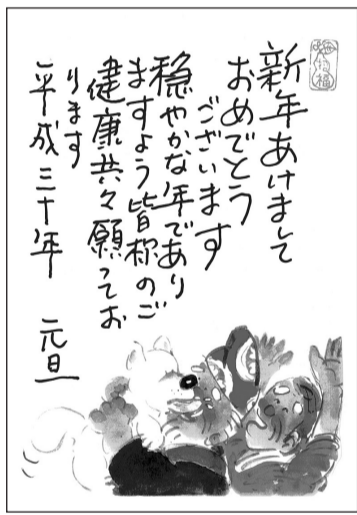 新年あけまして
おめでとう
ございます
穏やかな年であり
ますよう皆様のご
健康共々願ってお
ります
平成三十年 元旦